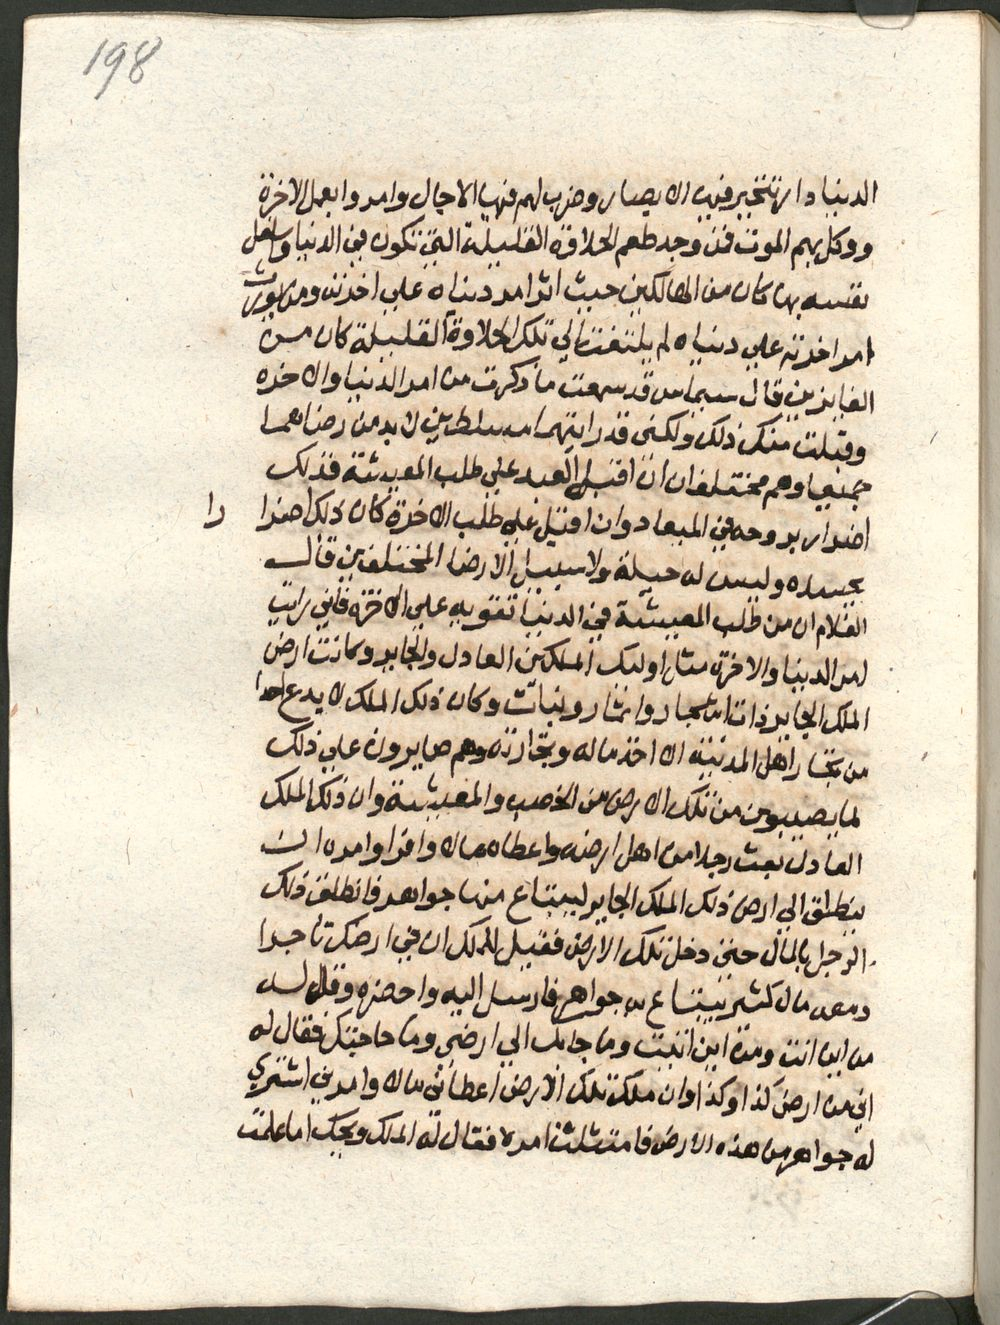 198
الدنيا دارا تتحير فيها الابصار وضرب لهم فيها الاجال وامروا بعمل الاخرة
ووكل بهم الموت فمن وجد طعم الحلاوة القليلة التي تكون في الدنيا وشغل
نفسه بها كان من الهالكين حيث اثر امر دنياه علي اخرته ومن يوثر
امر اخرته علي دنياه لم يلتفت الي تلك الحلاوة القليلة كان من
الفايزين قال سيماس قد سمعت ما ذكرت من امر الدنيا والاخره
وقبلت منك ذلك ولكني قد رايتهما مسلطين لا بد من رضاهما
جميعا وهم مختلفان ان اقبل العبد علي طلب المعيشة فذلك
اضرار بروحه في الميعاد وان اقبل علي طلب الاخرة كان ذلك اضرا را
بجسده وليس له حيلة ولا سبيل الارضا المختلفين قال
الغلام ان من طلب المعيشة في الدنيا تقويه علي الاخرة فاني رايت
امر الدنيا والاخرة مثل اوليك الملكين العادل والجاير وكانت ارض
الملك الجاير ذات اشجار واثمار ونبات وكان ذلك الملك لا يدع احدا
من تجار اهل المدينة الا اخذ ماله وتجارته وهم صابرون علي ذلك
لما يصيبون من تلك الارض من الخصب والمعيشة وان ذلك الملك
العادل بعث رجلا من اهل ارضه واعطاه مالا وافرا وامره ان
ينطلق الي ارض ذلك الملك الجاير ليبتاع منها جواهر فانطلق ذلك
الرجل بالمال حتي دخل تلك الارض فقيل للملك ان في ارضك تاجرا
ومعه مال كثير يبتاع به جواهر فارسل اليه واحضره وقال له
من اين انت ومن اين اتيت وما جا بك الي ارضي وما حاجتك فقال له
اني من ارض كذا وكذا وان ملك تلك الارض اعطاني مالا وامرني اشتري
له جواهر من هذه الارض فامتثلت امره فقال له الملك ويحك اما علمت